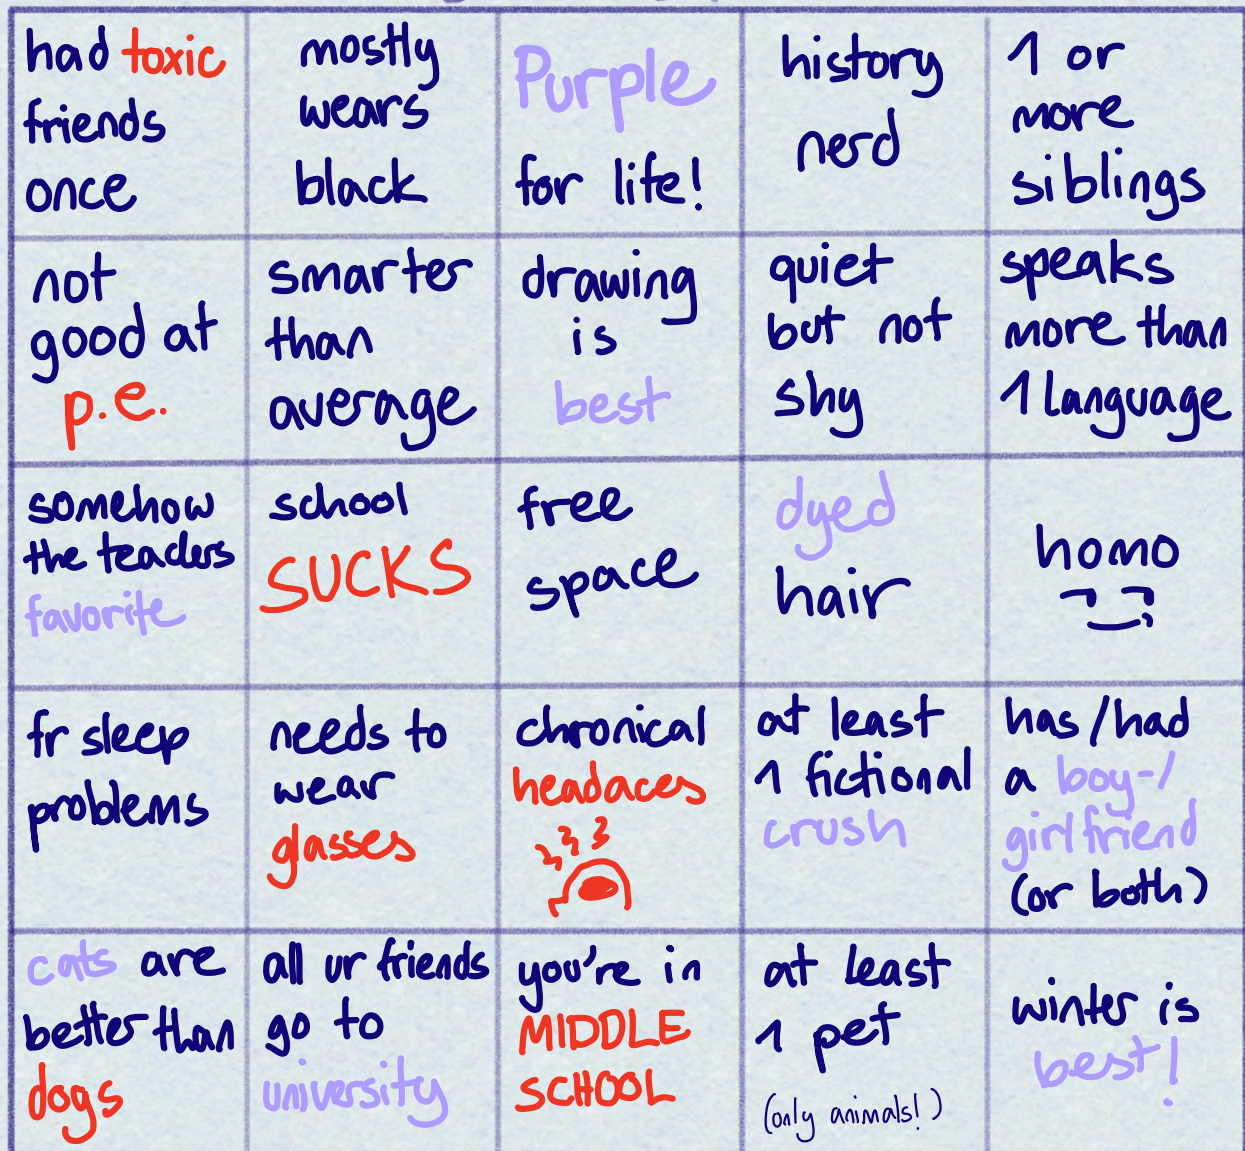 had toxic
friends
once
mostly
wears
black
Purple
for life!
history
nerd
1 or
more
siblings
not
good at
p.e.
smarter
than
average
drawing
is
best
quiet
but not
shy
speaks
more than
1 language
somehow
the teaclers
favorite
school
SUCKS
free
space
dyed
hair
homo
fr sleep
problems
needs to
wear
glasses
chronical
headaces
at least
1 fictional
crush
has/had
a boy-/
girlfriend
(or both)
cats are
better than
dogs
all ur friends
go to
university
you're in
MIDDLE
SCHOOL
at least
1 pet
(only animals!)
winter is
best!